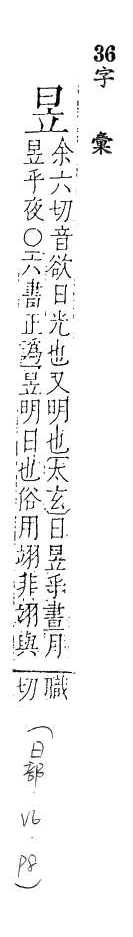 36 字彙
昱
余六切音欲日光也又明也太玄日昱乎晝月
昱乎夜○六書正譌昱明日也俗用翊非翊與
職
切
(日部.V6.P8)